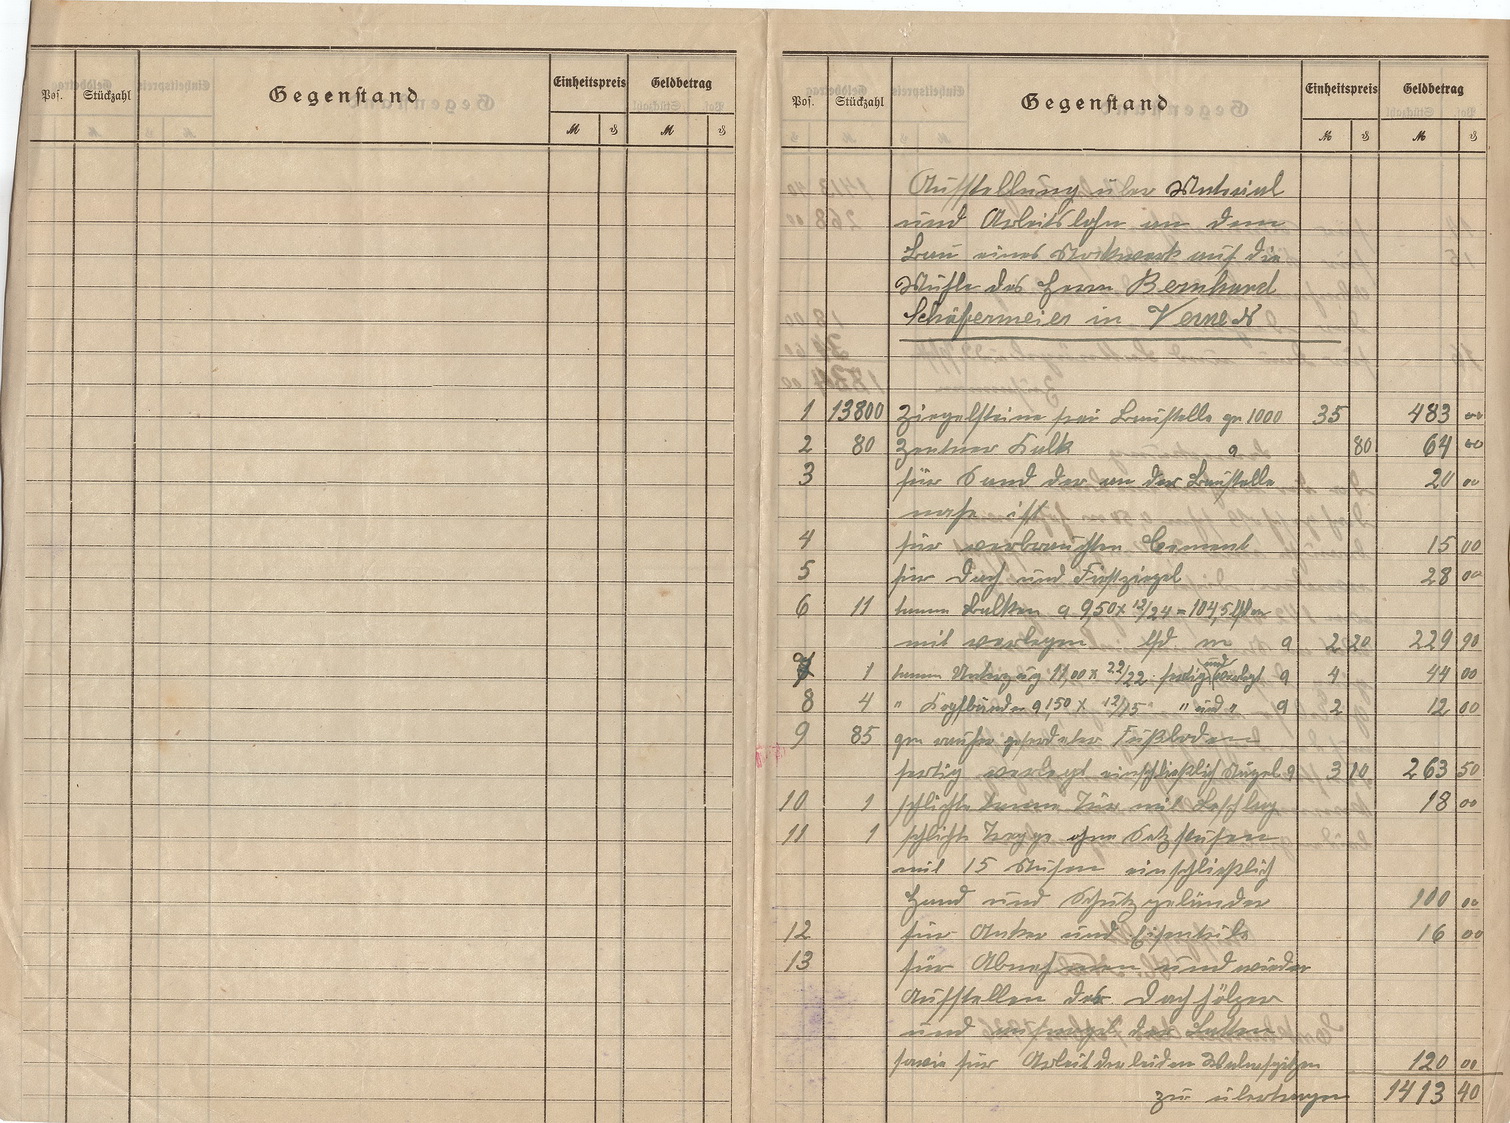 Pos. Stückzahl Gegenstand Einheitspreis Geldbetrag
M ₰ M ₰
Pos. Stückzahl Gegenstand Einheitspreis Geldbetrag
M ₰ M ₰
Aufstellung über Material
und Arbeitslohn an dem
Bau eines Stockwerk auf die
Mühle des Herrn Bernhard
Schäfermeier in Verne
1 13800 Ziegelsteine frei Baustelle pr 1000 35 483 00
2 80 Zentner Kalk a 80 64 00
3 für Sand der an der Baustelle 20 00
nahe ist
4 für verbrauchten Cement 15 00
5 für Dach und Firstziegel 28 00
6 11 tannen Balken a 9,50 x 12/24 = 104,5 lfd m
mit verlegen lfd m a 2 20 229 90
7 1 tannen Unterzug 11,00 x 22/22 fertig und verlegt a 4 44 00
8 4 " Kopfbänder a 1,50 x 12/15 " " und " a 2 12 00
9 85 qm rauher gefederter Fußboden
fertig verlegt einschließlich Nägel a 3 10 263 50
10 1 schlichte tannen Tür mit Beschlag 18 00
11 1 schlichte Treppe ohne Setzstufen
mit 15 Stufen einschließlich
Hand und Schutzgeländer 100 00
12 für Anker und Eisenteile 16 00
13 für Abnehmen und wieder
Aufstellen der Dachhölzer
und der Latten
sowie für Arbeit der beiden 120 00
zu übertragen 1413 40